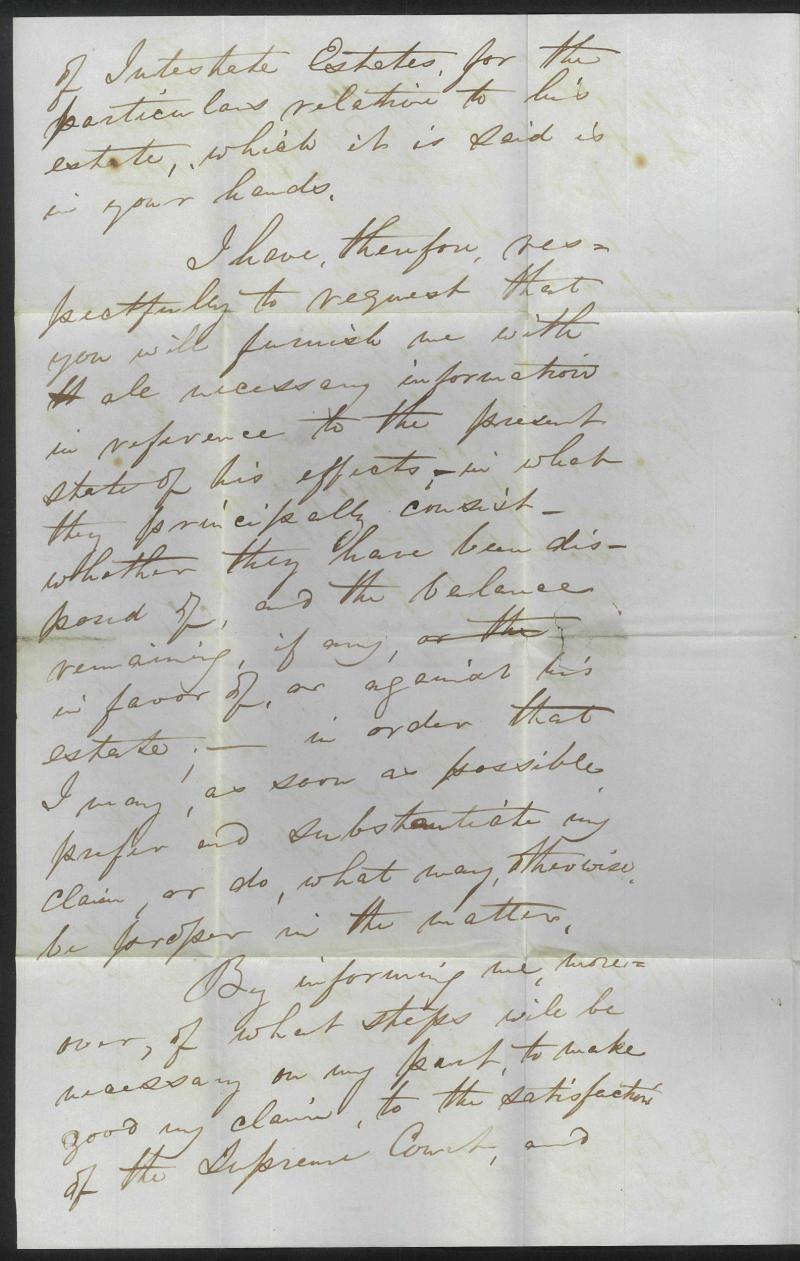 of Intestate Estates, for the
particulars relative to his
estate, which it is said is
in your hands.
I have, therefore, res=
pectfully to request that
you will furnish me with
all necessary information
in reference to the present
state of his effects, - in what
they principally consist -
whether they have been dis-
posed of, and the balance
remaining, if any, or the
in favor of, or against his
estate; — in order that
I may, as soon as possible,
prefer and substantiate my
claim, or do, what may, otherwise,
be proper in the matter.
By informing me, more=
over, of what steps will be
necessary on my part, to make
good my claim, to the satisfaction
of the Supreme Court, and